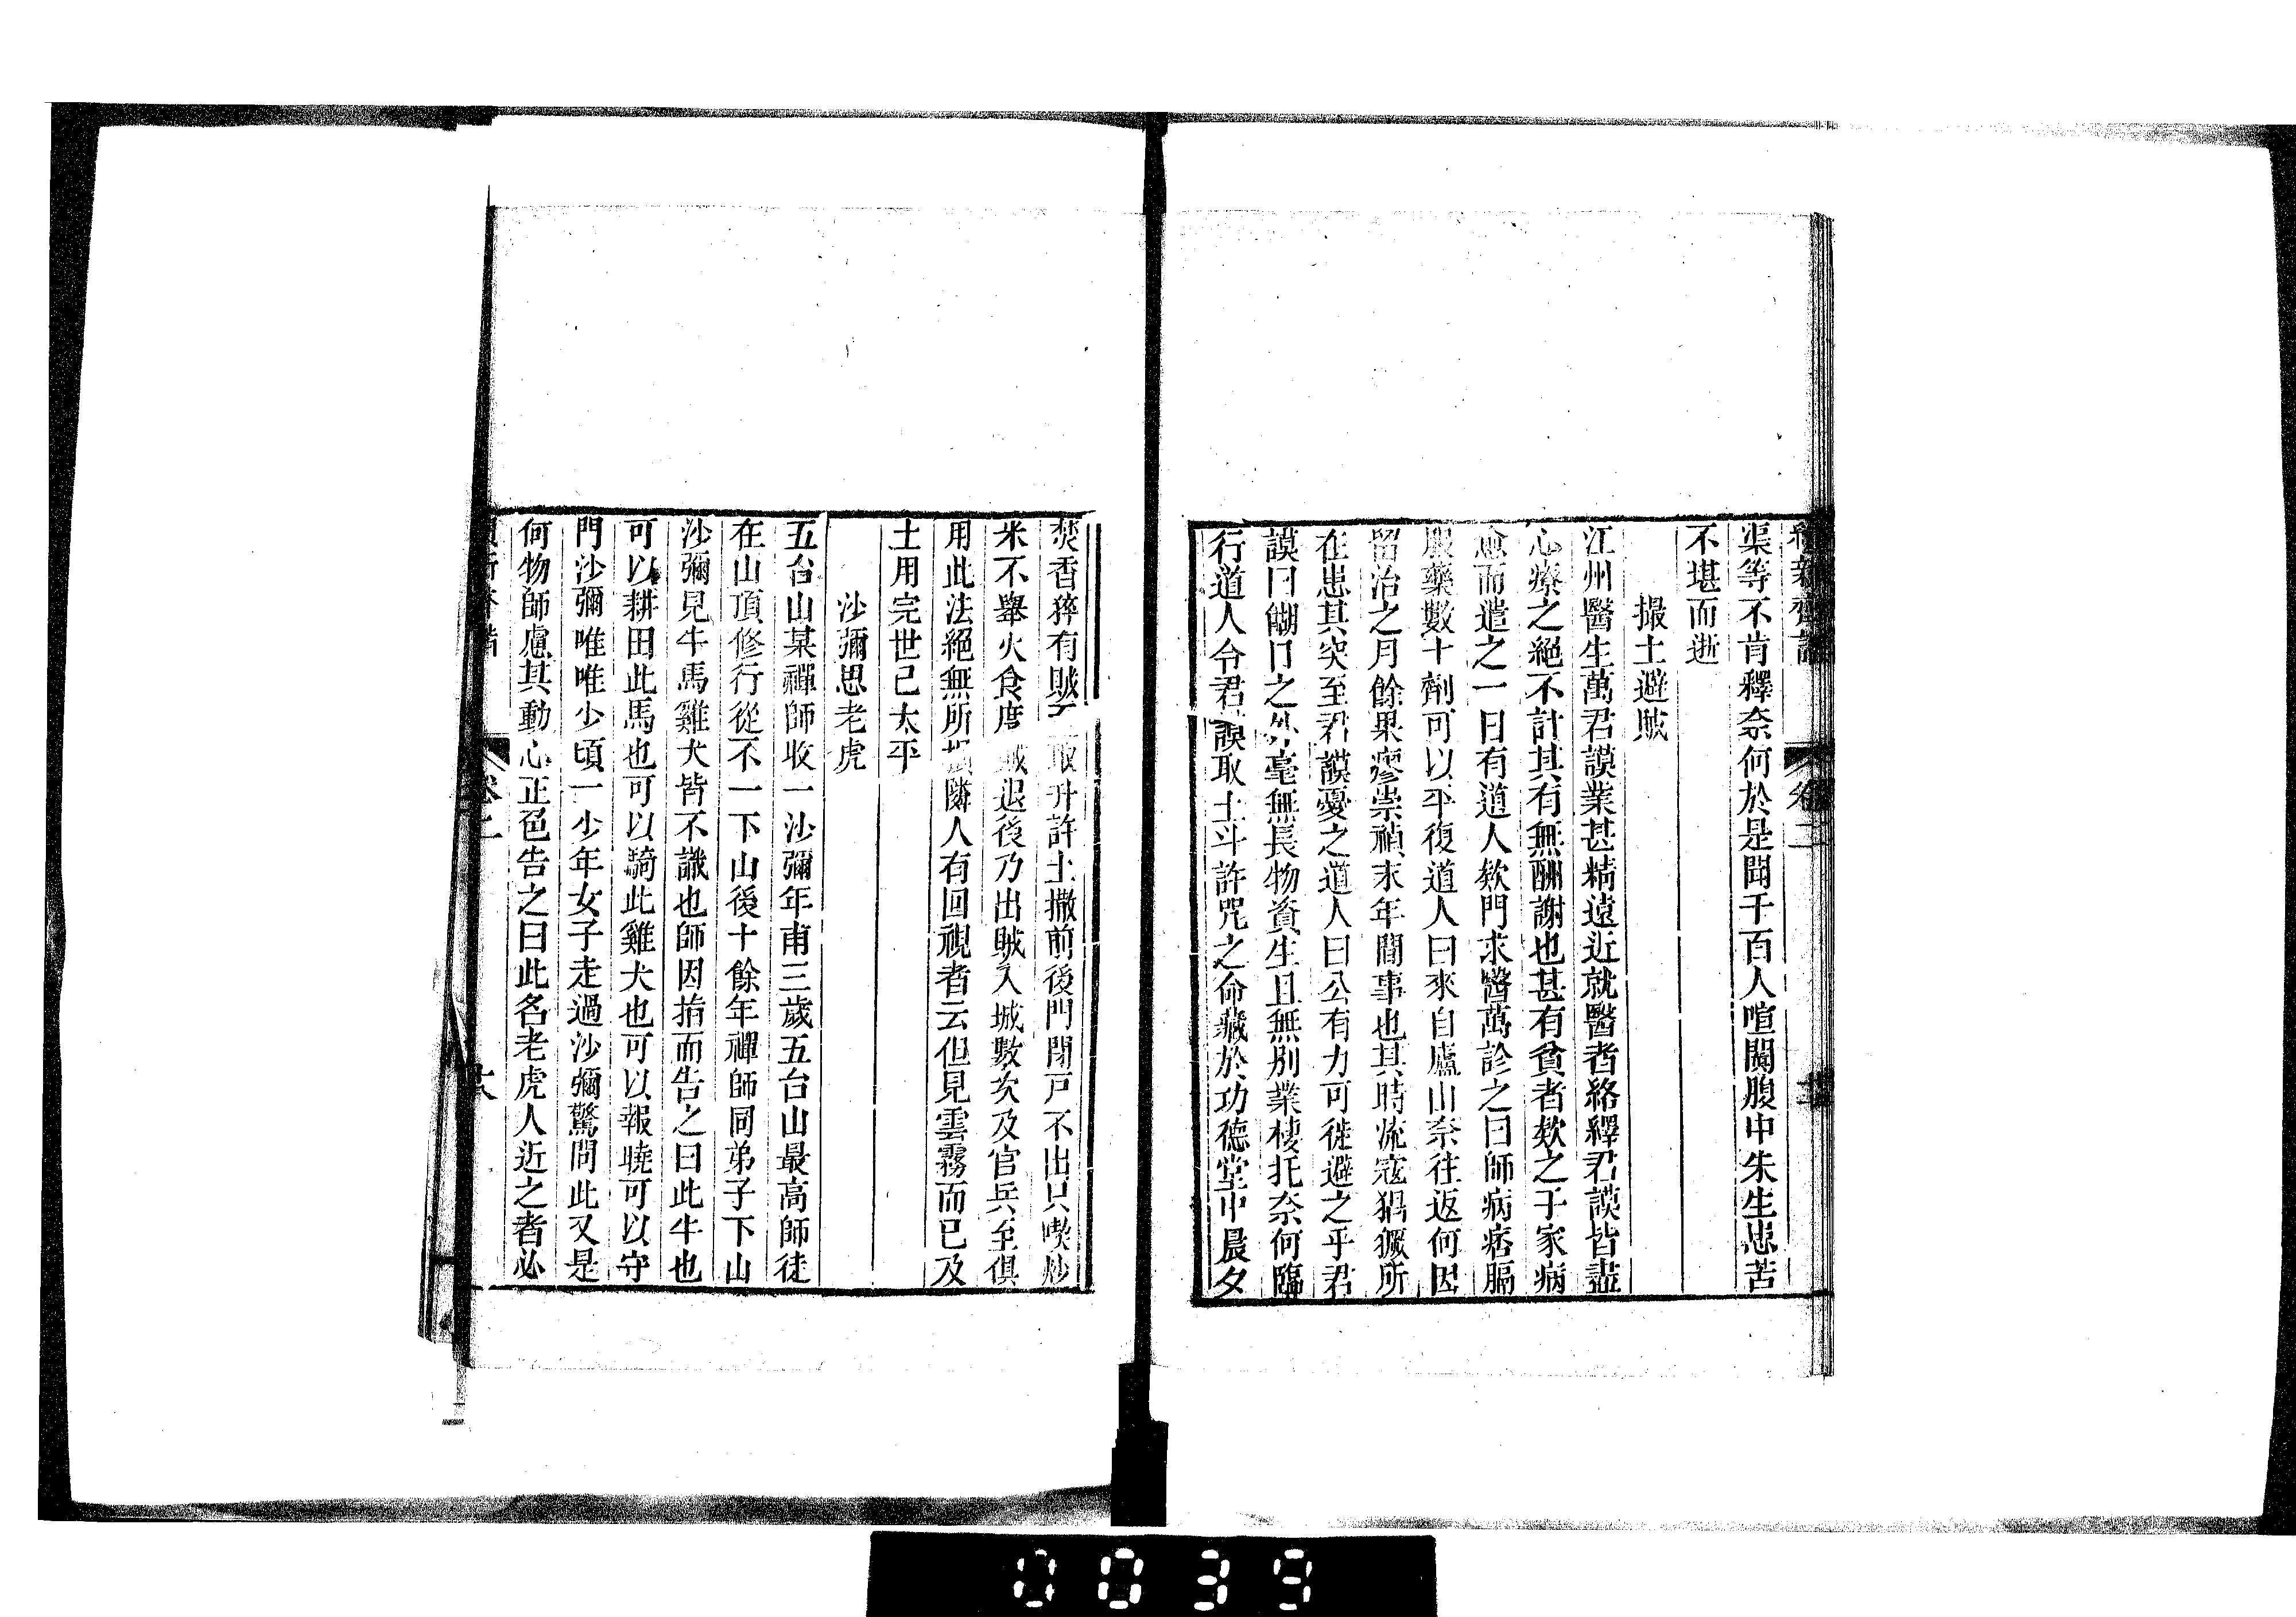 渠等不肯釋奈何於是聞千百人喧闐腹中朱生患苦
不堪而逝
撮土避賊
江州醫生萬君謨業甚精遠近就醫者絡繹君謨皆盡
心療之絕不計其有無酬謝也甚有貧者欸之于家病
愈而遣之一日有道人欸門求醫萬診之曰師病痞膈
服藥數十劑可以平復道人曰來自廬山奈往返何因
留治之月餘果瘳崇禎末年間事也其時流寇猖獗所
在患其突至君謨憂之道人曰公有力可徙避之乎君
謨曰餬口之外毫無長物資生且無別業棲托奈何臨
行道人令君謨取土斗許咒之命藏於功德堂中晨夕
焚香猝有賊 取升許土撒前後門閉戸不出只喫炒
米不舉火食度 賊退後乃出賊入城數次及官兵至俱
用此法絕無所損隣人有回視者云但見雲霧而已及
土用完世已太平
沙彌思老虎
五台山某禪師收一沙彌年甫三歲五台山最高師徒
在山頂修行從不一下山後十餘年禪師同弟子下山
沙彌見牛馬雞犬皆不識也師因指而告之曰此牛也
可以耕田此馬也可以騎此雞犬也可以報曉可以守
門沙彌唯唯少頃一少年女子走過沙彌驚問此又是
何物師慮其動心正色告之曰此名老虎人近之者必
卷二
0039